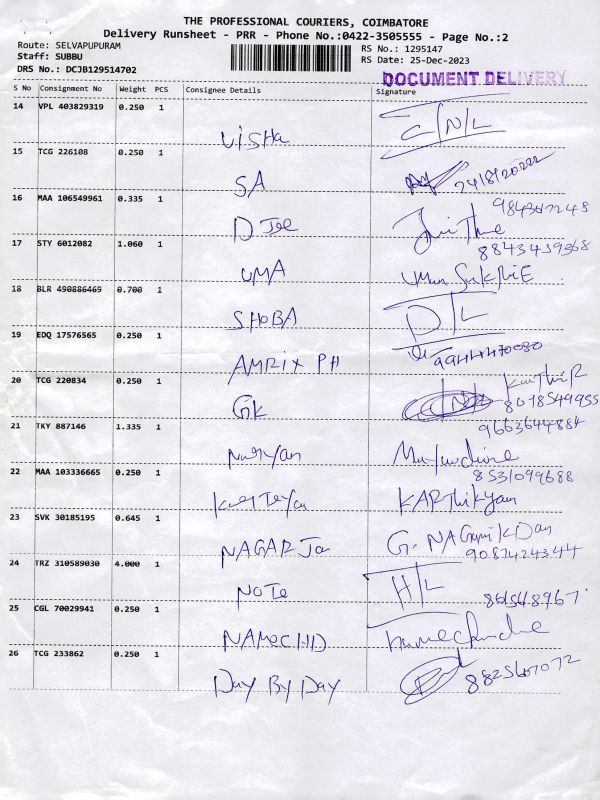 THE PROFESSIONAL COURIERS, COIMBATORE
Delivery Runsheet - PRR - Phone No.:0422-3505555 - Page No.:2
Route: SELVAPUPURAM
Staff: SUBBU
DRS No.: DCJB129514702
RS No.: 1295147
RS Date: 25-Dec-2023
DOCUMENT DELIVERY
S No Consignment No Weight PCS Consignee Details Signature
14 VPL 403829319 0.250 1
VISHA C/N/L
15 TCG 226108 0.250 1
SA
16 MAA 106549961 0.335 1
D Joe
17 STY 6012082 1.060 1
8843439368
UMA
18 BLR 490886469 0.700 1
SHOBA D/L
19 EDQ 17576565 0.250 1
AMRIX PH
20 TCG 220834 0.250 1
GK
8078549955
21 TKY 887146 1.335 1
9663644884
22 MAA 103336665 0.250 1
8531099688
KARThikyan
23 SVK 30185195 0.645 1
NAGARJa
24 TRZ 310589030 4.000 1
9087424344
NOTe H/L
25 CGL 70029941 0.250 1
NAMeCHD
26 TCG 233862 0.250 1
8825607072
DAY BY DAY